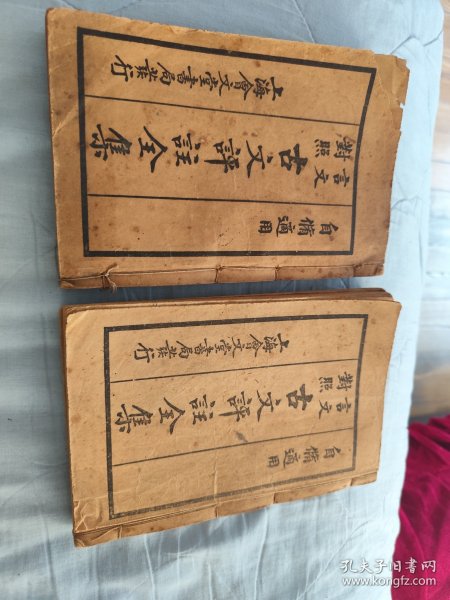 自修適用
言文
對照
古文評註全集
上海會文堂書局發行
自修適用
言文
對照
古文評註全集
上海會文堂書局發行
孔夫子旧书网
www.kongfz.com